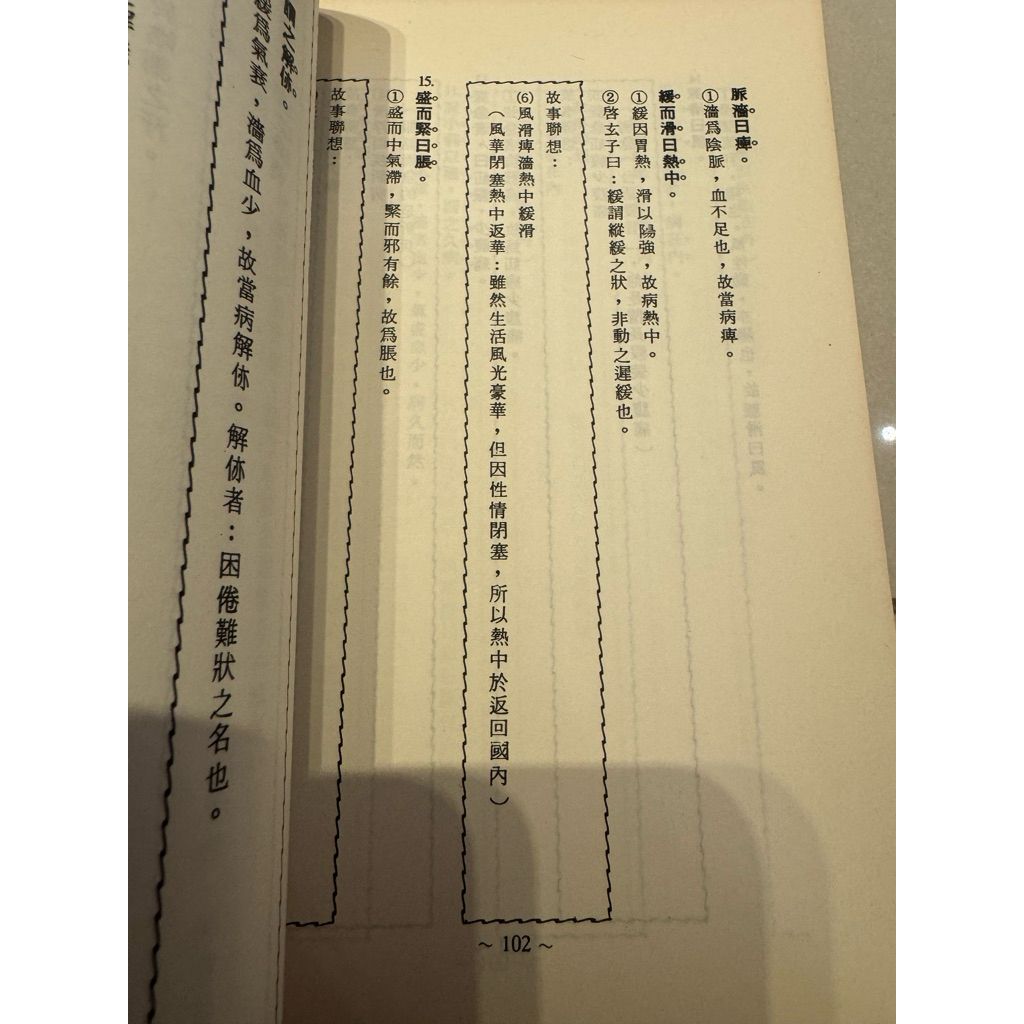 脈濇曰痺。
①濇爲陰脈，血不足也，故當病痺。
緩而滑曰熱中。
①緩因胃熱，滑以陽強，故病熱中。
②啓玄子曰：緩謂縱緩之狀，非動之遲緩也。
故事聯想：
⑹風滑痺濇熱中緩滑
（風華閉塞熱中返華：雖然生活風光豪華，但因性情閉塞，所以熱中於返回國內）
15.盛而緊曰脹。
①盛而中氣滯，緊而邪有餘，故爲脹也。
故事聯想：
～102～
謂之解㑊。
緩爲氣衰，濇爲血少，故當病解㑊。解㑊者：困倦難狀之名也。